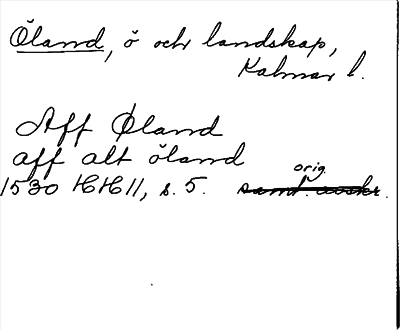 Öland, ö och landskap,
Kalmar l.
Aff Øland
aff alt öland
orig.
1530 HH 11, s. 5. samt. avskr.